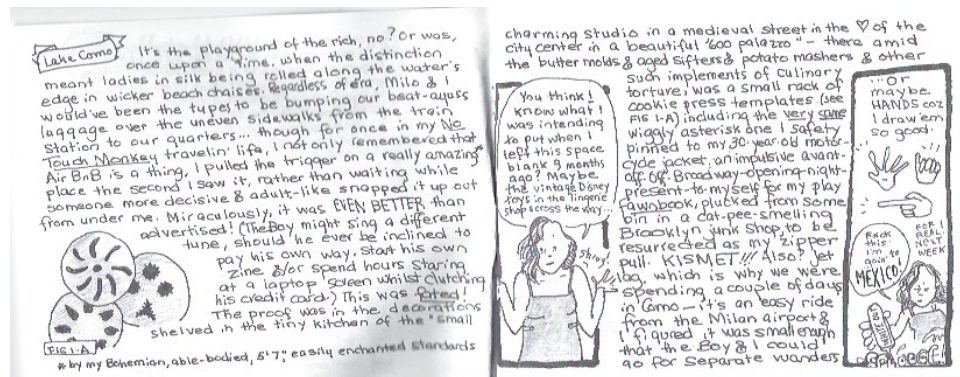 Lake Como
It's the playground of the rich, no? Or was,
once upon a time, when the distinction
meant ladies in silk being rolled along the water's
edge in wicker beach chaises. Regardless of era, Milo & I
would've been the types to be bumping our beat-ayuss
luggage over the uneven sidewalks from the train
station to our quarters... though for once in my No
Touch Monkey travelin' life, I not only remembered that
Air BnB is a thing, I pulled the trigger on a really amazing*
place the second I saw it, rather than waiting while
someone more decisive & adult-like snapped it up out
from under me. Miraculously, it was EVEN BETTER than
advertised! (The Boy might sing a different
tune, should he ever be inclined to
pay his own way, start his own
zine &/or spend hours staring
at a laptop screen whilst clutching
his credit card.) This was fated!
The proof was in the decorations
shelved in the tiny kitchen of the "small
FIG 1-A
* by my Bohemian, able-bodied, 5'7", easily enchanted standards
charming studio in a medieval street in the ♡ of the
city center in a beautiful '600 palazzo" – there amid
the butter molds & aged sifters & potato mashers & other
such implements of culinary
torture, was a small rack of
cookie press templates (see
FIG 1-A) including the very same
wiggly asterisk one I safety
pinned to my 30-year-old motor-
cycle jacket, an impulsive avant-
off-Off-Broadway-opening-night-
present-to-myself for my play
Fawnbook, plucked from some
bin in a cat-pee-smelling
Brooklyn junk shop, to be
resurrected as my zipper
pull. KISMET!!! Also? Jet
lag, which is why we were
spending a couple of days
in Como – it's an easy ride
from the Milan airport &
I figured it was small enough
that the Boy & I could
go for separate wanders
You think I
know what I
was intending
to put when I
left this space
blank 9 months
ago? Maybe
the vintage Disney
toys in the lingerie
shop across the way...
Shrug!
...or
maybe
HANDS coz
I draw 'em
so good.
Fuck
this
I'm
goin' to
MEXICO!
FOR
REAL!
NEXT
WEEK
WHITE OUT